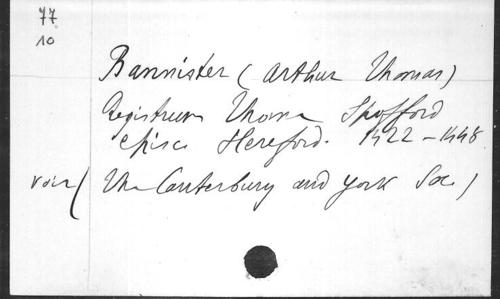 77
10
Bannister (Arthur Thomas)
Registrum Thome Spofford
episc. Hereford. 1422-1448
voir (The Canterbury and York Soc)